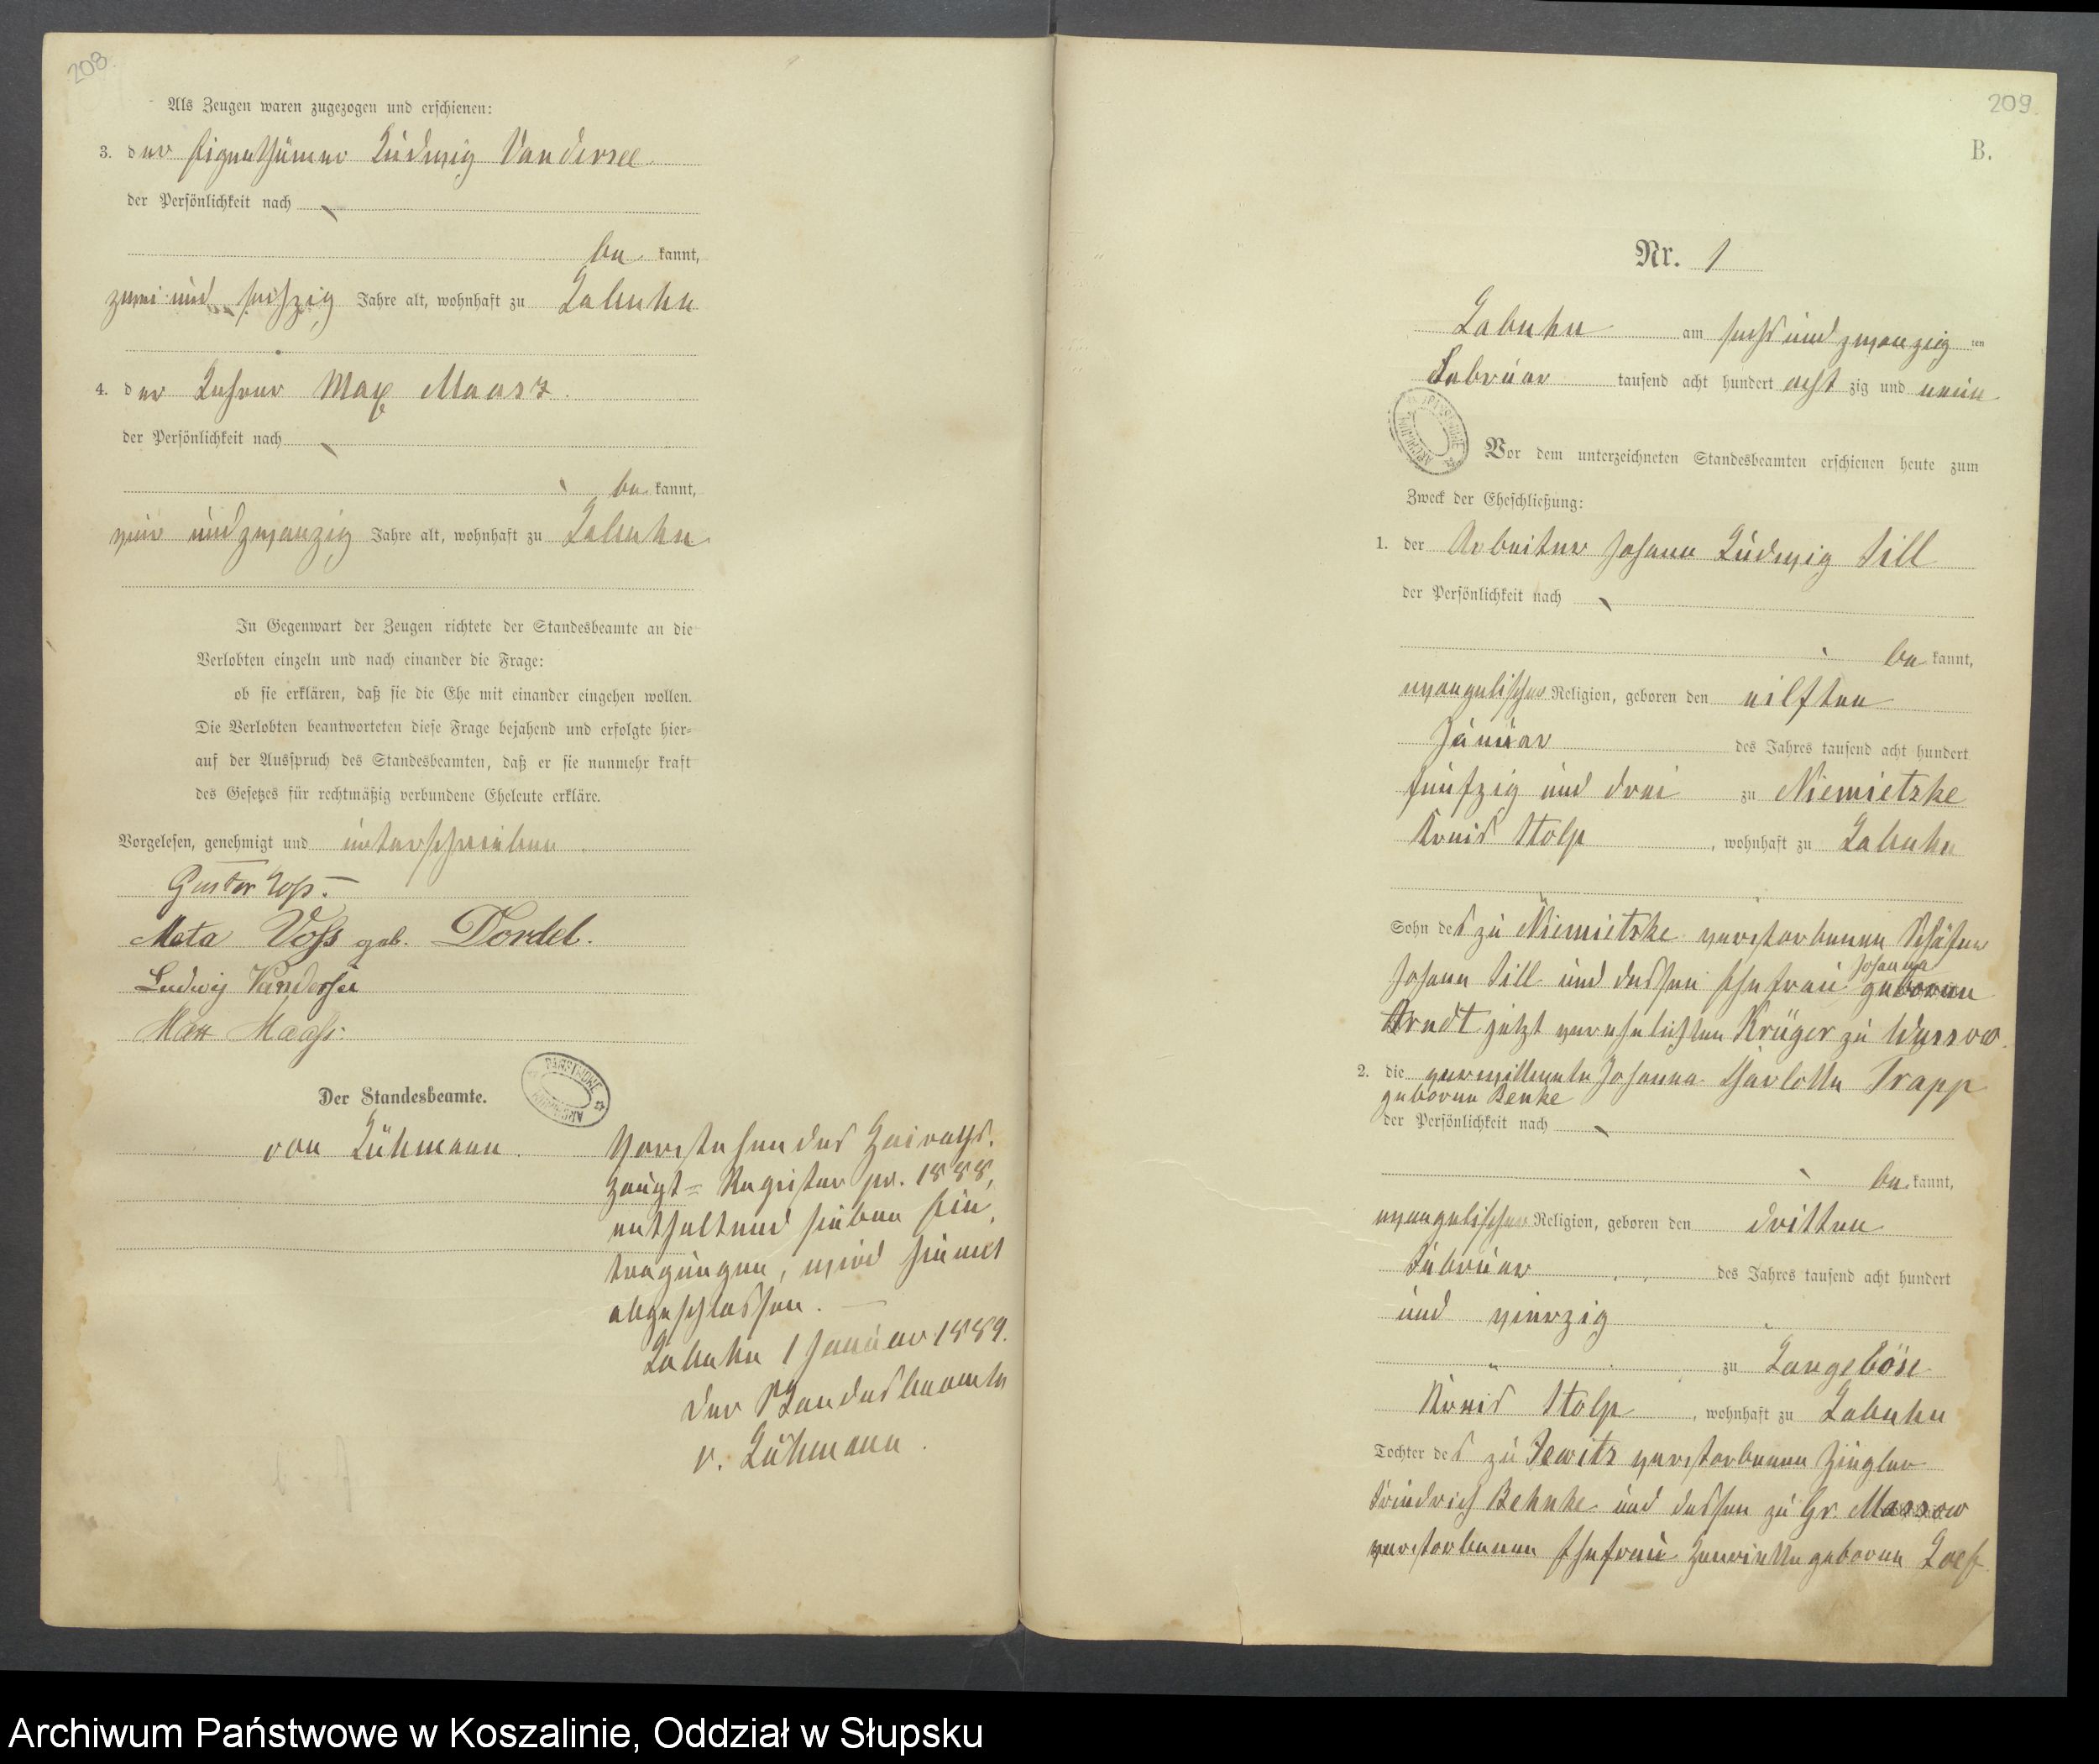 208.
Als Zeugen waren zugezogen und erschienen:
3. der Eigenthümer Ludwig Vandersee
der Persönlichkeit nach
bekannt,
zwei und sechzig Jahre alt, wohnhaft zu Labuhn
4. der Lehrer Max Maass
der Persönlichkeit nach
bekannt,
vier und zwanzig Jahre alt, wohnhaft zu Labuhn
In Gegenwart der Zeugen richtete der Standesbeamte an die
Verlobten einzeln und nach einander die Frage:
ob sie erklären, daß sie die Ehe mit einander eingehen wollen.
Die Verlobten beantworteten diese Frage bejahend und erfolgte hier-
auf der Ausspruch des Standesbeamten, daß er sie nunmehr kraft
des Gesetzes für rechtmäßig verbundene Eheleute erkläre.
Vorgelesen, genehmigt und unterschrieben.
Gustav Voß.
Meta Voß geb. Dordel.
Ludwig Vandersee
Max Maaß.
Der Standesbeamte.
von Lühmann.
Vorstehendes Heiraths-
Haupt-Register pr. 1888,
enthaltend sieben Ein-
tragungen, wird hiermit
abgeschlossen. —
Labuhn 1 Januar 1889.
Der Standesbeamte
v. Lühmann.
209
B.
Nr. 1
Labuhn am sechs und zwanzig ten
Februar tausend acht hundert acht zig und neun
Vor dem unterzeichneten Standesbeamten erschienen heute zum
Zweck der Eheschließung:
1. der Arbeiter Johann Ludwig Sill
der Persönlichkeit nach
bekannt,
evangelischer Religion, geboren den eilften
Januar des Jahres tausend acht hundert
fünfzig und drei zu Niemietzke
Kreis Stolp, wohnhaft zu Labuhn
Sohn des zu Niemietzke verstorbenen Schäfer
Johann Sill und dessen Ehefrau Johanna geboren
Arndt jetzt verehelichten Krüger zu Wussow.
2. die verwittwete Johanna Charlotte Trapp
geborene Benke
der Persönlichkeit nach
bekannt,
evangelischer Religion, geboren den dritten
Februar des Jahres tausend acht hundert
und vierzig
zu Langeböse
Kreis Stolp, wohnhaft zu Labuhn
Tochter des zu Jewitz verstorbenen Ziegler
Friedrich Behnke und dessen zu Gr. Massow
verstorbenen Ehefrau Henriette geborene
Archiwum Państwowe w Koszalinie, Oddział w Słupsku